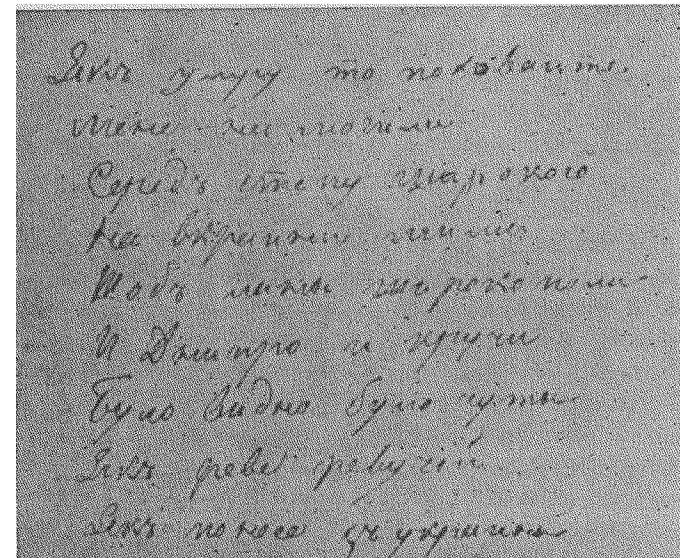 Якъ умру то поховайте
Мене на могили
Середъ степу широкого
На вкраини мили
Щобъ ланы широкополи
И Днипро и кручи
Було видно було чуты
Якъ реве ревучій
Якъ понесе зъ украины